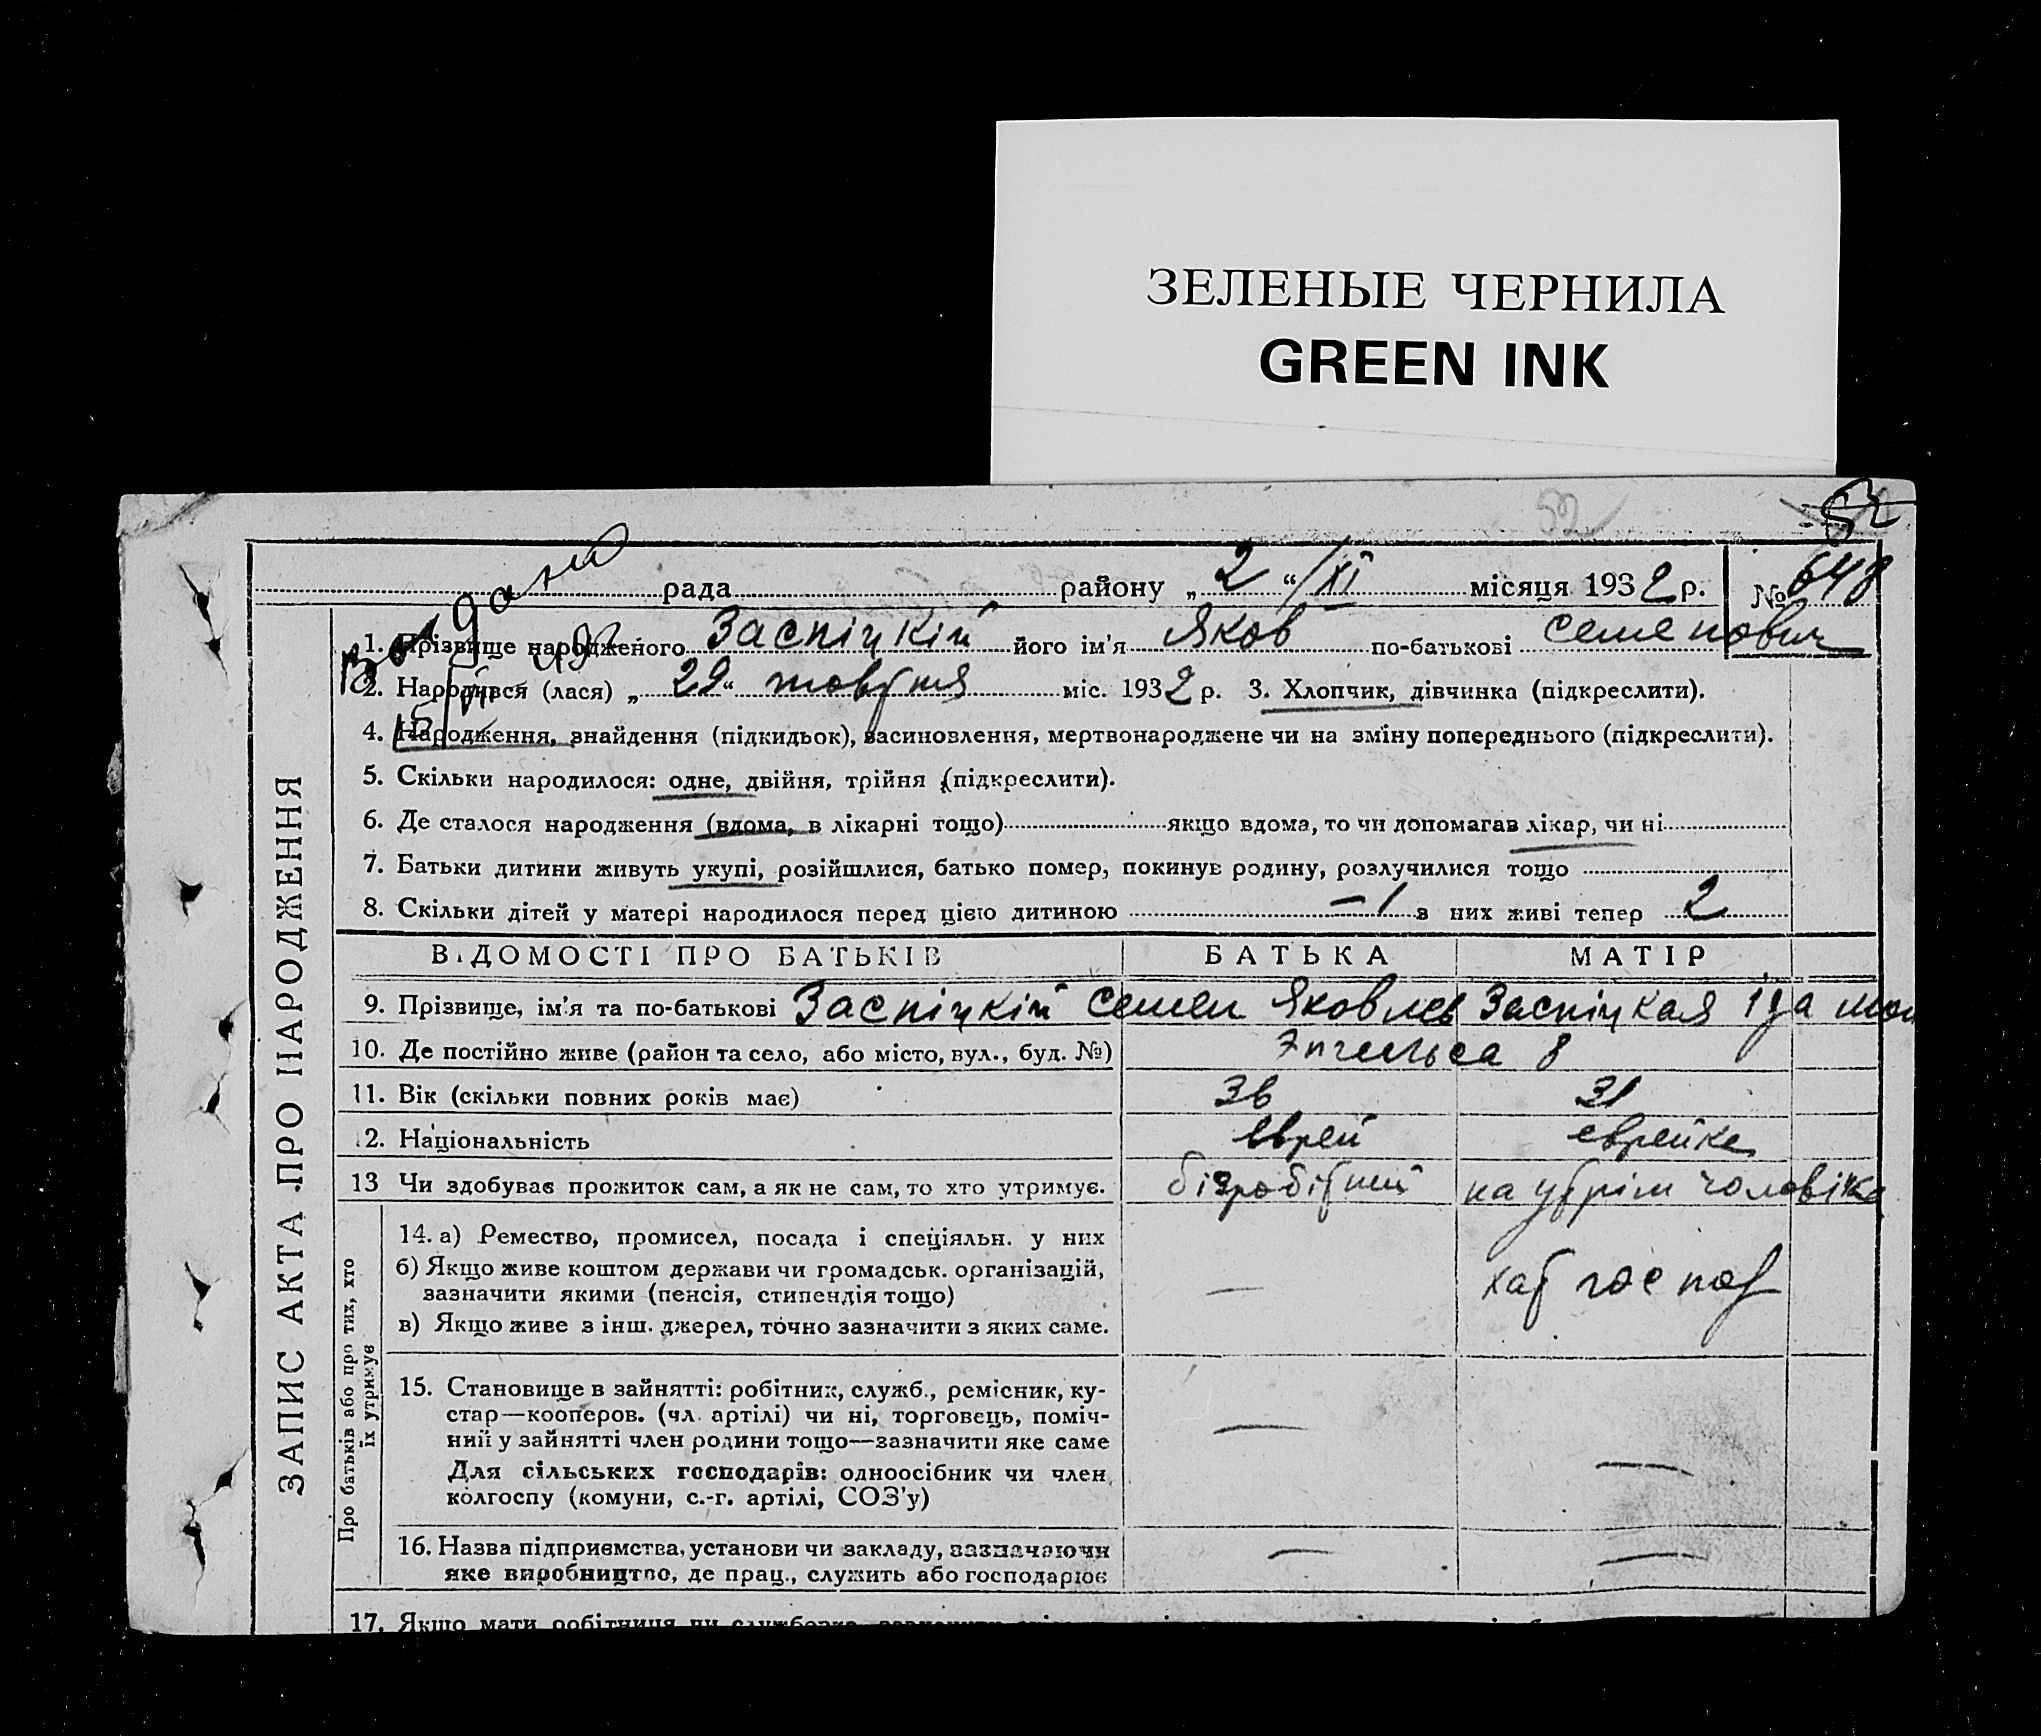 ЗЕЛЕНЫЕ ЧЕРНИЛА
GREEN INK
52
52
рада района „ 2 “ /XI місяця 1932 р. № 648
1. Прізвище народженого Заспіцкій його ім'я Яков по-батькові Семенович
2. Народився (лася) „ 29 “ жовтня міс. 1932 р. 3. Хлопчик, дівчинка (підкреслити).
4. Народження, знайдення (підкидьок), засиновлення, мертвонароджене чи на зміну попереднього (підкреслити).
5. Скільки народилося: одне, двійня, трійня (підкреслити).
6. Де сталося народження (вдома, в лікарні тощо) якщо вдома, то чи допомагав лікар, чи ні
7. Батьки дитини живуть укупі, розійшлися, батько помер, покинув родину, розлучилися тощо
8. Скільки дітей у матері народилося перед цією дитиною – 1 з них живі тепер 2
ВІДОМОСТІ ПРО БАТЬКІВ БАТЬКА МАТІР
9. Прізвище, ім'я та по-батькові Заспіцкій Семен Яковлев Заспіцкая Іда
10. Де постійно живе (район та село, або місто, вул., буд. №) Энгельса 8
11. Вік (скільки повних років має) 36 31
12. Національність еврей еврейка
13 Чи здобуває прожиток сам, а як не сам, то хто утримує. бізробітний на утрім чоловіка
14. а) Ремество, промисел, посада і спеціяльн. у них
б) Якщо живе коштом держави чи громадськ. організацій,
зазначити якими (пенсія, стипендія тощо)
в) Якщо живе з інш. джерел, точно зазначити з яких саме.
— хат гос под
15. Становище в зайнятті: робітник, служб., ремісник, ку-
стар—кооперов. (чл. артілі) чи ні, торговець, поміч-
ний у зайнятті член родини тощо—зазначити яке саме
Для сільських господарів: одноосібник чи член
колгоспу (комуни, с.-г. артілі, СОЗ'у)
— —
16. Назва підприємства, установи чи закладу, зазначаючи
яке виробництво, де прац., служить або господарює
— —
17. Якщо мати робітниця чи
ЗАПИС АКТА ПРО НАРОДЖЕННЯ
Про батьків або про тих, хто
їх утримує